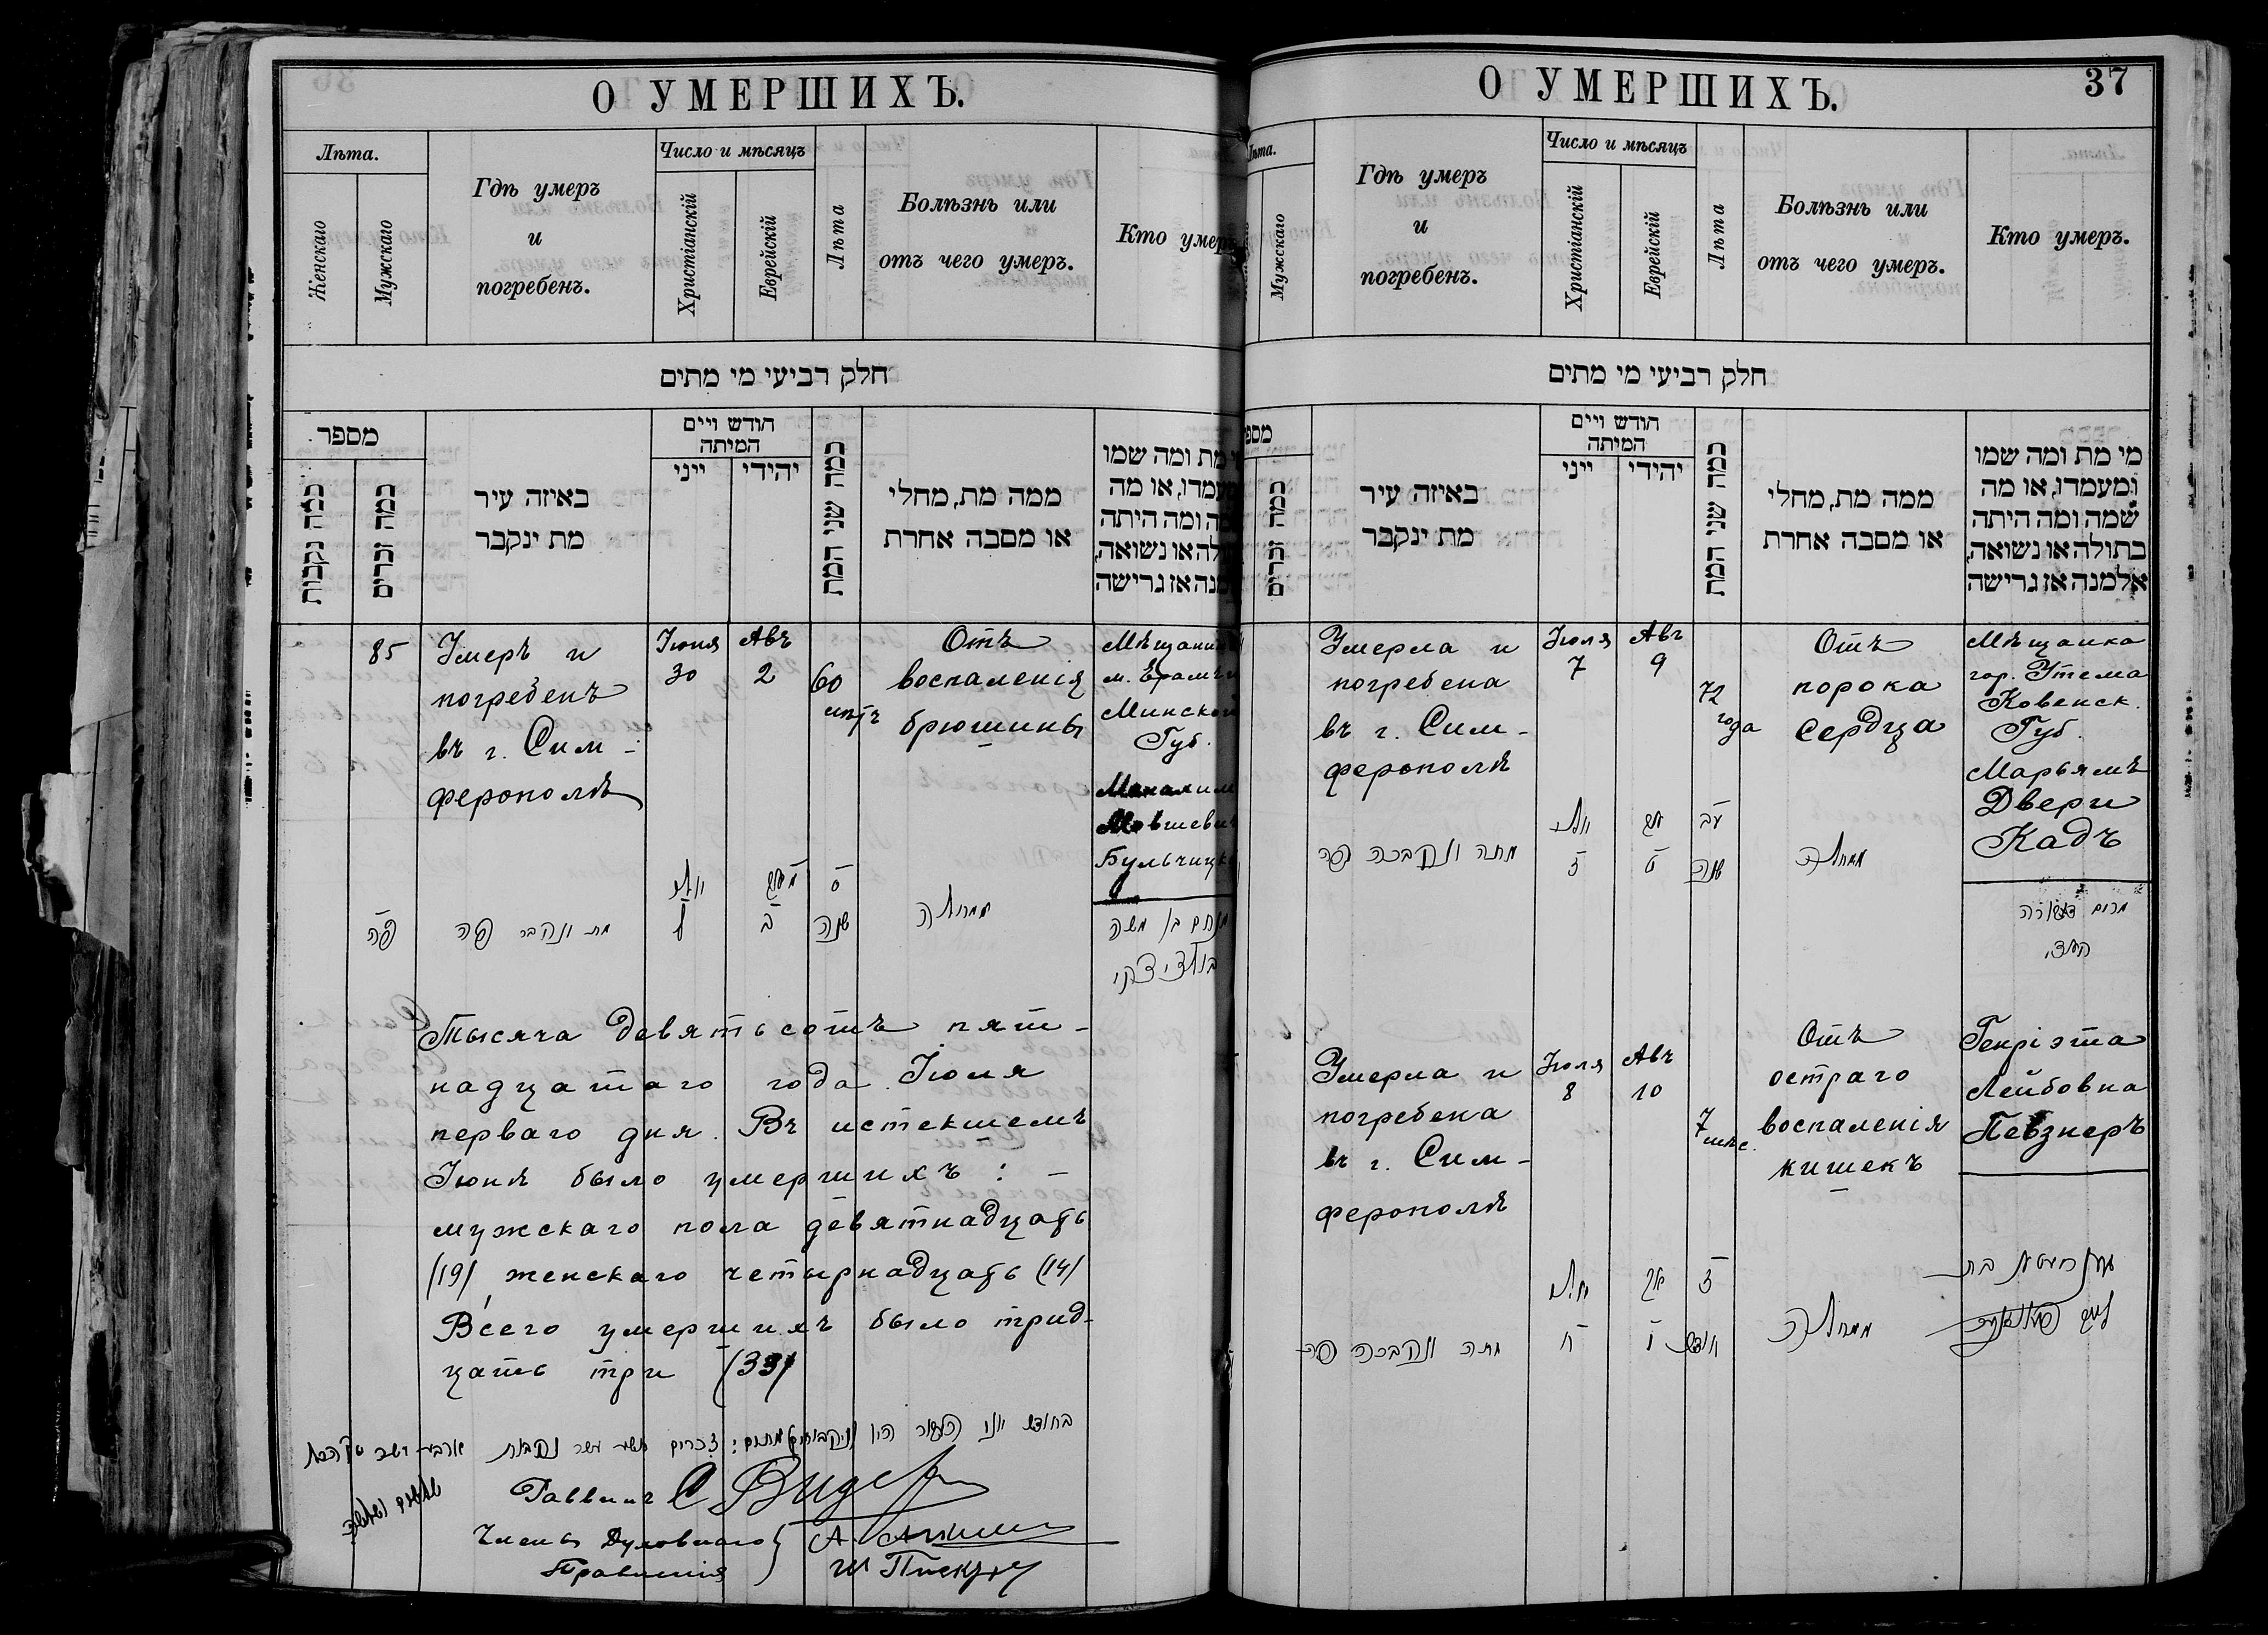 О УМЕРШИХЪ.
Лѣта.
Женскаго
Мужскаго
Гдѣ умеръ
и
погребенъ.
Число и мѣсяцъ
Христіанскій
Еврейскій
Лѣта
Болѣзнь или
отъ чего умеръ.
Кто умеръ
חלק רביעי מי מתים
מספר
כמה נקבות
כמה זכרים
באיזה עיר
מת ינקבר
חודש ויים
המיתה
ייני
יהידי
כמה שני המת
ממה מת, מחלי
או מסבה אחרת
מת ומה שמו
או מה
ומה היתה
או נשואה,
אז גרישה
85
Умеръ и
погребенъ
въ г. Сим-
ферополѣ
Іюня
30
Авъ
2
60
лѣтъ
Отъ
воспаленія
брюшины
Мѣщанинъ
м.
Минской
Губ.
פה
מת ונקבר פה
ל
ב
ס
שנה
ממחלה
מנחם בן משה
Тысяча девятьсотъ пят-
надцатаго года Іюля
перваго дня. Въ истекшемъ
Іюнѣ было умершихъ: -
мужскаго пола девятнадцать
(19), женскаго четырнадцать (14)
Всего умершихъ было трид-
цать три (33)
Раввинъ С
Члены Духовнаго
Правленія
О УМЕРШИХЪ.
37
Лѣта.
Мужскаго
Гдѣ умеръ
и
погребенъ.
Число и мѣсяцъ
Христіанскій
Еврейскій
Лѣта
Болѣзнь или
отъ чего умеръ.
Кто умеръ.
חלק רביעי מי מתים
כמה זכרים
באיזה עיר
מת ינקבר
חודש ויים
המיתה
ייני
יהידי
כמה שני המת
ממה מת, מחלי
או מסבה אחרת
מי מת ומה שמו
ומעמדו, או מה
שמה ומה היתה
בתולה או נשואה,
אלמנה אז גרישה
Умерла и
погребена
въ г. Сим-
ферополѣ
Іюля
7
Авъ
9
72
года
Отъ
порока
сердца
Мѣщанка
гор. Утема
Ковенск.
Губ.
Марьямъ
Двери
Кадъ
מתה ונקברה פה
יולי
ז
אב
ט
עב
שנה
ממחלה
מרים
Умерла и
погребена
въ г. Сим-
ферополѣ
Іюля
8
Авъ
10
7
мѣс.
Отъ
остраго
воспаленія
кишекъ
Генріэта
Лейбовна
Певзнеръ
מתה ונקברה פה
יולי
ח
אב
י
ז
חודש
ממחלה
בת